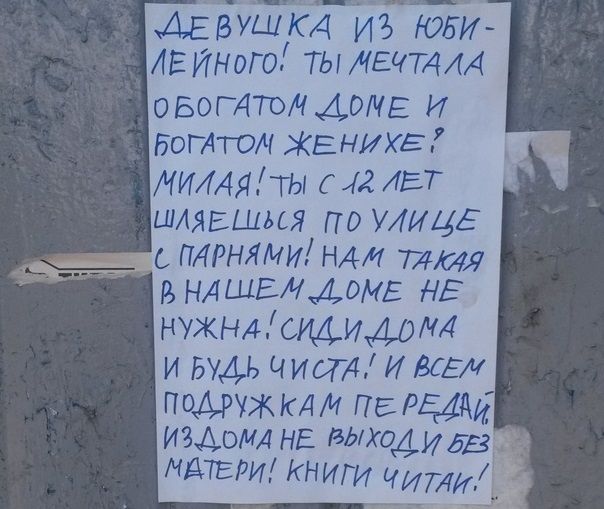 ДЕВУШКА ИЗ ЮБИ-
ЛЕЙНОГО! ТЫ МЕЧТАЛА
О БОГАТОМ ДОМЕ И
БОГАТОМ ЖЕНИХЕ?
МИЛАЯ! ТЫ С 12 ЛЕТ
ШЛЯЕШЬСЯ ПО УЛИЦЕ
С ПАРНЯМИ! НАМ ТАКАЯ
В НАШЕМ ДОМЕ НЕ
НУЖНА! СИДИ ДОМА
И БУДЬ ЧИСТА! И ВСЕМ
ПОДРУЖКАМ ПЕРЕДАЙ,
ИЗ ДОМА НЕ ВЫХОДИ БЕЗ
МАТЕРИ! КНИГИ ЧИТАЙ!